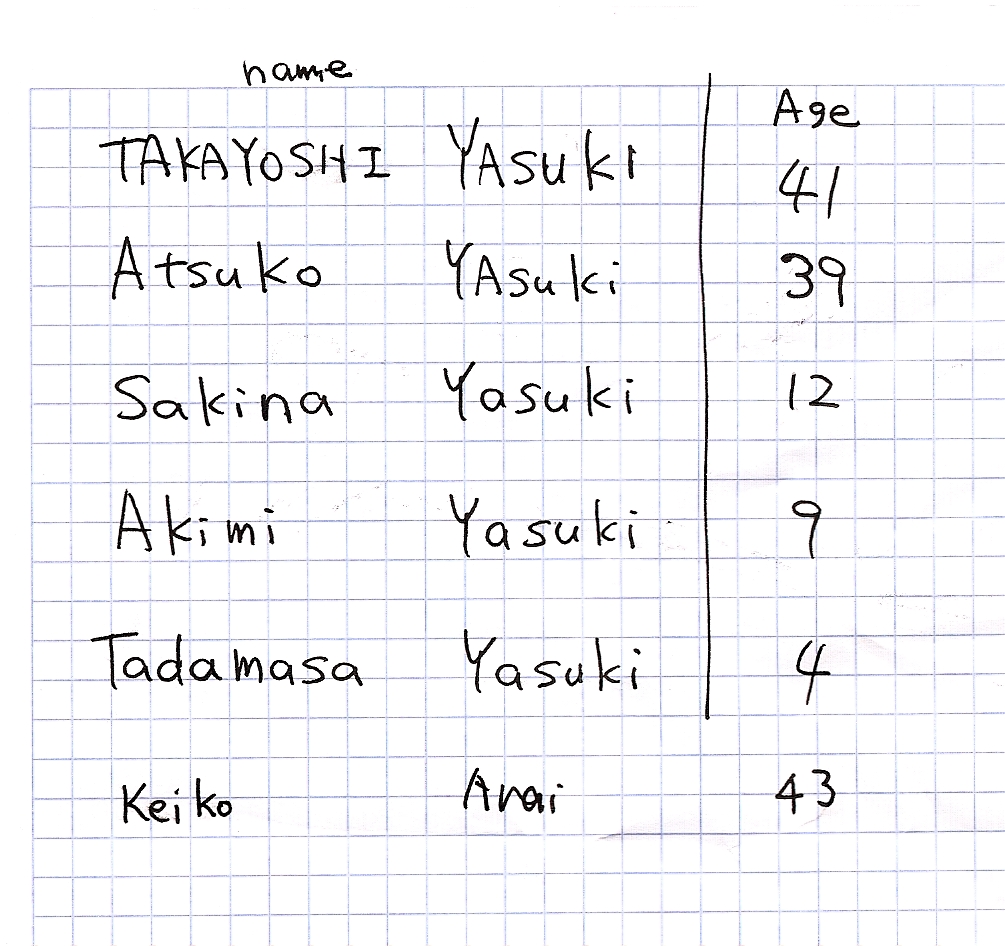 name Age
TAKAYOSHI YASuKI 41
Atsuko YASuki 39
Sakina Yasuki 12
Akimi Yasuki 9
Tadamasa Yasuki 4
Keiko Arai 43